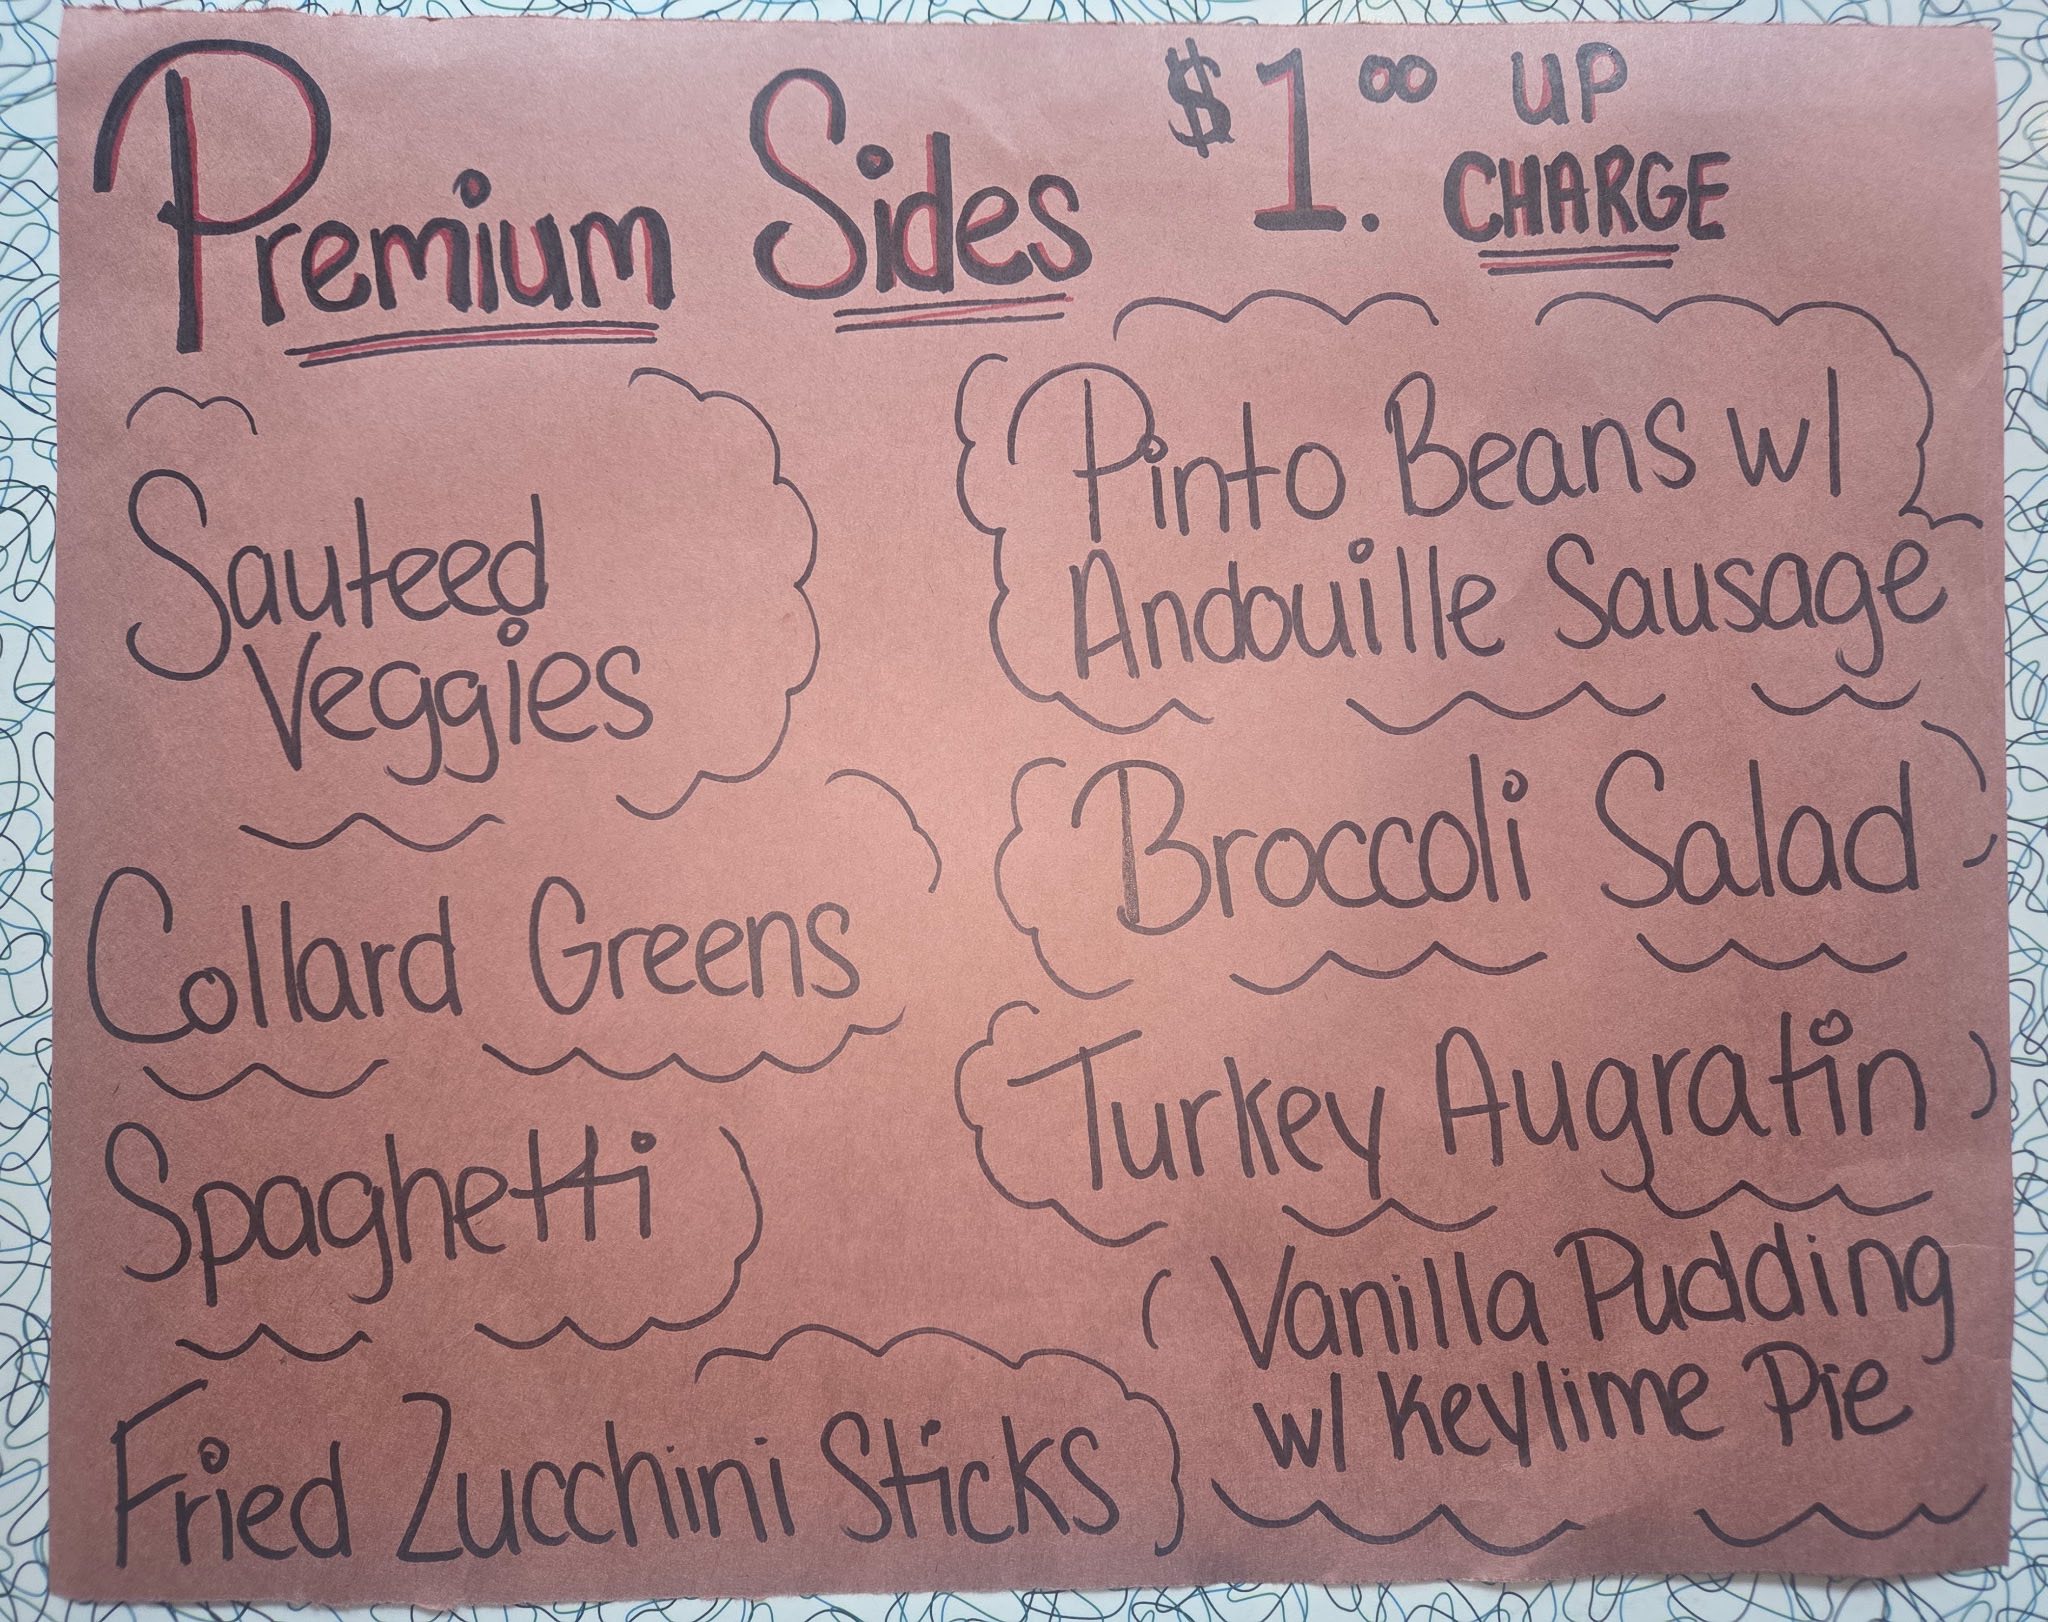 Premium Sides $1.00 UP
CHARGE
Sauteed
Veggies
Collard Greens
Spaghetti
Fried Zucchini Sticks
Pinto Beans w/
Andouille Sausage
Broccoli Salad
Turkey Augratin
Vanilla Pudding
w/ Keylime Pie